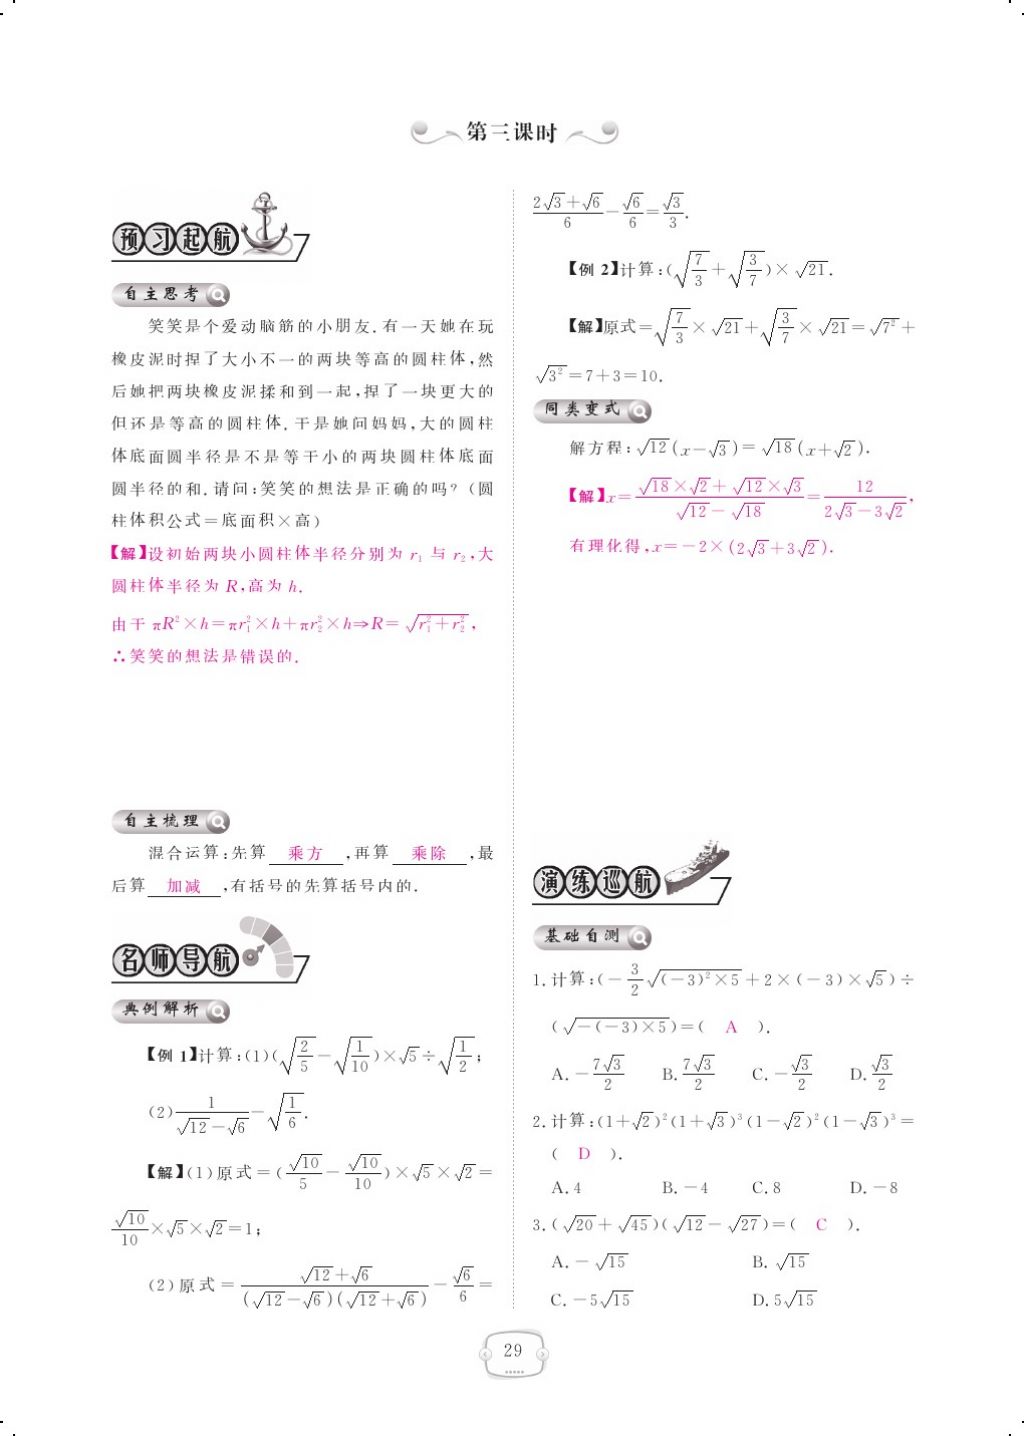 第三课时
预习起航
自主思考
笑笑是个爱动脑筋的小朋友.有一天她在玩
橡皮泥时捏了大小不一的两块等高的圆柱体,然
后她把两块橡皮泥揉和到一起,捏了一块更大的
但还是等高的圆柱体.于是她问妈妈,大的圆柱
体底面圆半径是不是等于小的两块圆柱体底面
圆半径的和.请问:笑笑的想法是正确的吗?(圆
柱体积公式=底面积×高)
【解】设初始两块小圆柱体半径分别为 r₁ 与 r₂,大
圆柱体半径为 R,高为 h.
由于 πR²×h=πr₁²×h+πr₂²×h⇒R=√(r₁²+r₂²),
∴笑笑的想法是错误的.
自主梳理
混合运算:先算 乘方 ,再算 乘除 ,最
后算 加减 ,有括号的先算括号内的.
名师导航
典例解析
【例 1】计算:(1)(√(2/5)-√(1/10))×√5÷√(1/2);
(2)1/(√12-√6)-√(1/6).
【解】(1)原式=(√10/5-√10/10)×√5×√2=
√10/10×√5×√2=1;
(2)原式=(√12+√6)/((√12-√6)(√12+√6))-√6/6=
(2√3+√6)/6-√6/6=√3/3.
【例 2】计算:(√(7/3)+√(3/7))×√21.
【解】原式=√(7/3)×√21+√(3/7)×√21=√7²+
√3²=7+3=10.
同类变式
解方程:√12(x-√3)=√18(x+√2).
【解】x=(√18×√2+√12×√3)/(√12-√18)=12/(2√3-3√2),
有理化得,x=-2×(2√3+3√2).
演练巡航
基础自测
1.计算:(-3/2√((-3)²×5)+2×(-3)×√5)÷
(√(-(-3)×5))=( A ).
A.-7√3/2 B.7√3/2 C.-√3/2 D.√3/2
2.计算:(1+√2)²(1+√3)³(1-√2)²(1-√3)³=
( D ).
A.4 B.-4 C.8 D.-8
3.(√20+√45)(√12-√27)=( C ).
A.-√15 B.√15
C.-5√15 D.5√15
29